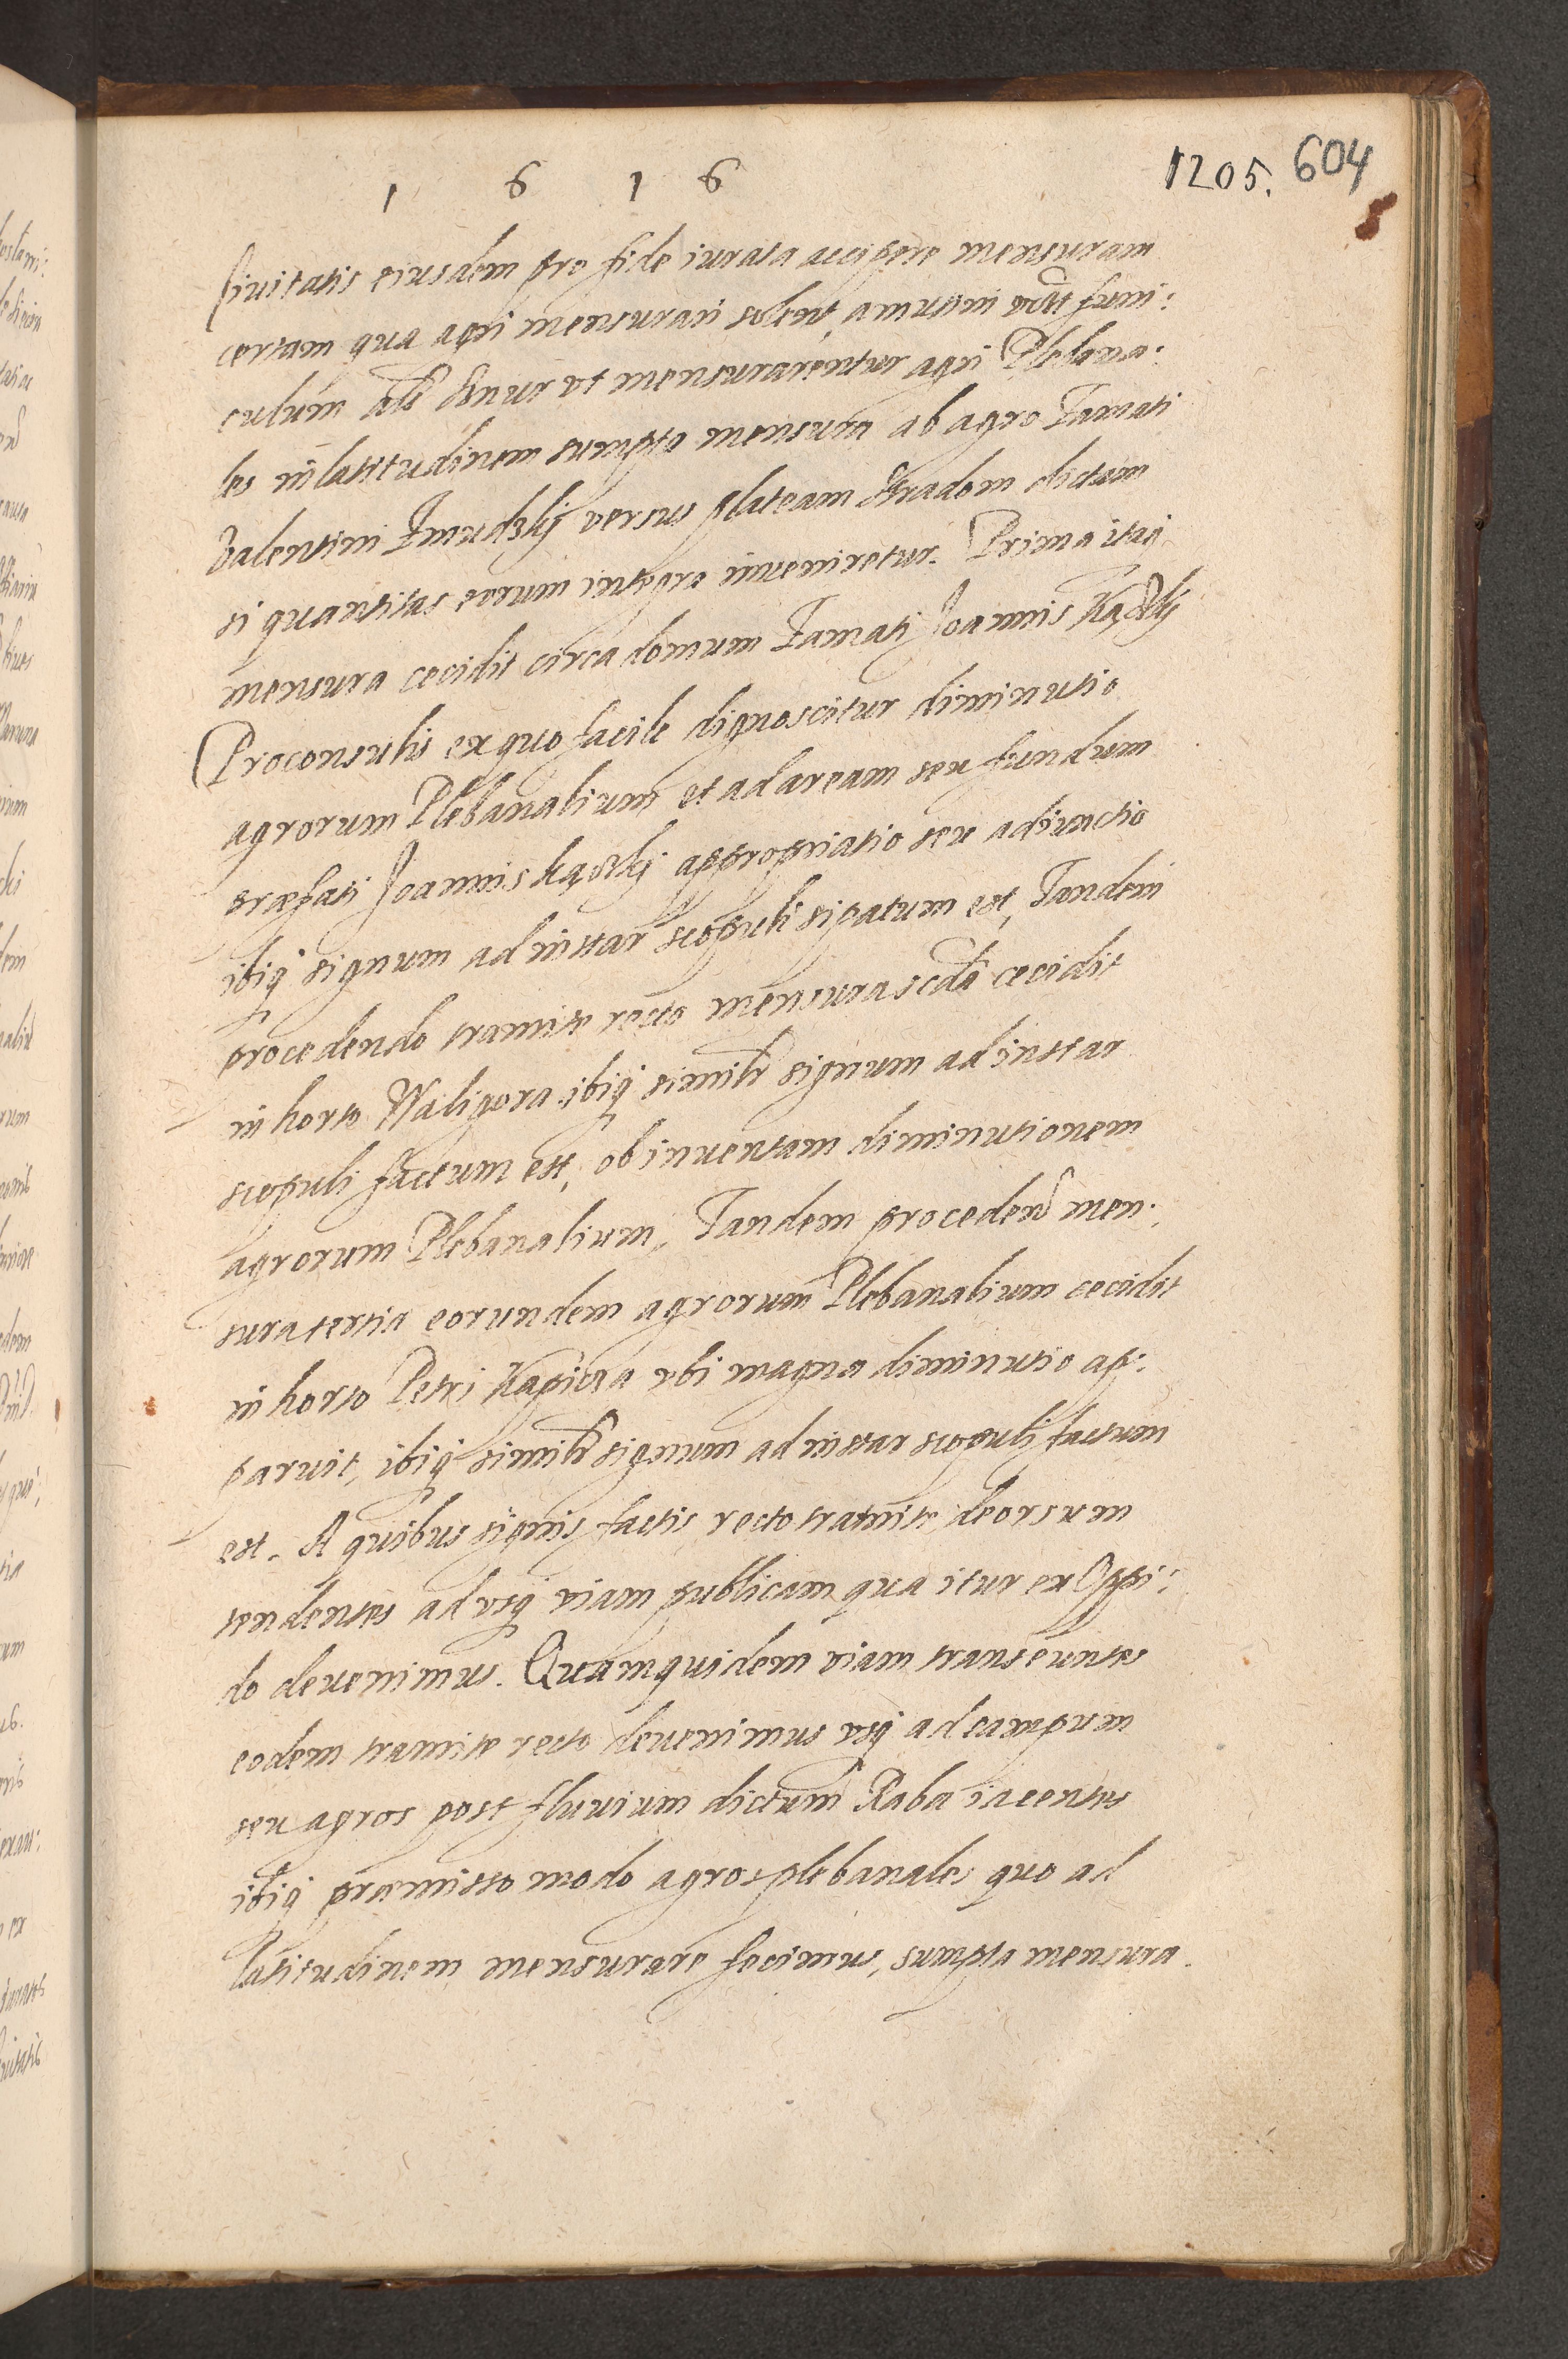 1 6 1 6
1205. 604
Ciuitatis eiusdem pro fide iurata accipere mensuram
certam qua agri mensurari solent, amussim funi:
culum als sznur vt mensurarentur agri Plebana:
les in latitudinem sumpta mensura ab agro Famati
Valentini Zmudzkj versus plateam Stradom dictam
si quantitas eorum integra inueniretur. Prima itaq
mensura cecidit circa domum Famati Joannis
Proconsulis ex quo facile dignoscitur diminutio
agrorum Plebanalium et ad aream seu fundum
præfati Joannis appropriatio seu adiunctio
ibiq signum ad instar scopuli sipatum est, Tandem
procedendo tramite recto mensura scda cecidit
in horto Waligora ibiq similr signum ad instar
scopuli factum est, ob inuentam diminutionem
agrorum Plebanalium, Tandem procedend men:
sura tertia eorundem agrorum Plebanalium cecidit
in horto Petri Kapica vbi magna diminutio ap:
paruit, ibiq similr signum ad instar scopulj factum
est. A quibus signis factis recto tramite deorsum
tendentes ad vsq viam publicam qua itur ex Oppi:
do deuenimus. Quamquidem viam transeuntes
eodem tramite recto deuenimus vsq ad campum
seu agros post fluuium dictum Raba iacentes
ibiq præmisso modo agros plebanales quo ad
latitudinem mensurare fecimus, sumpta mensura.